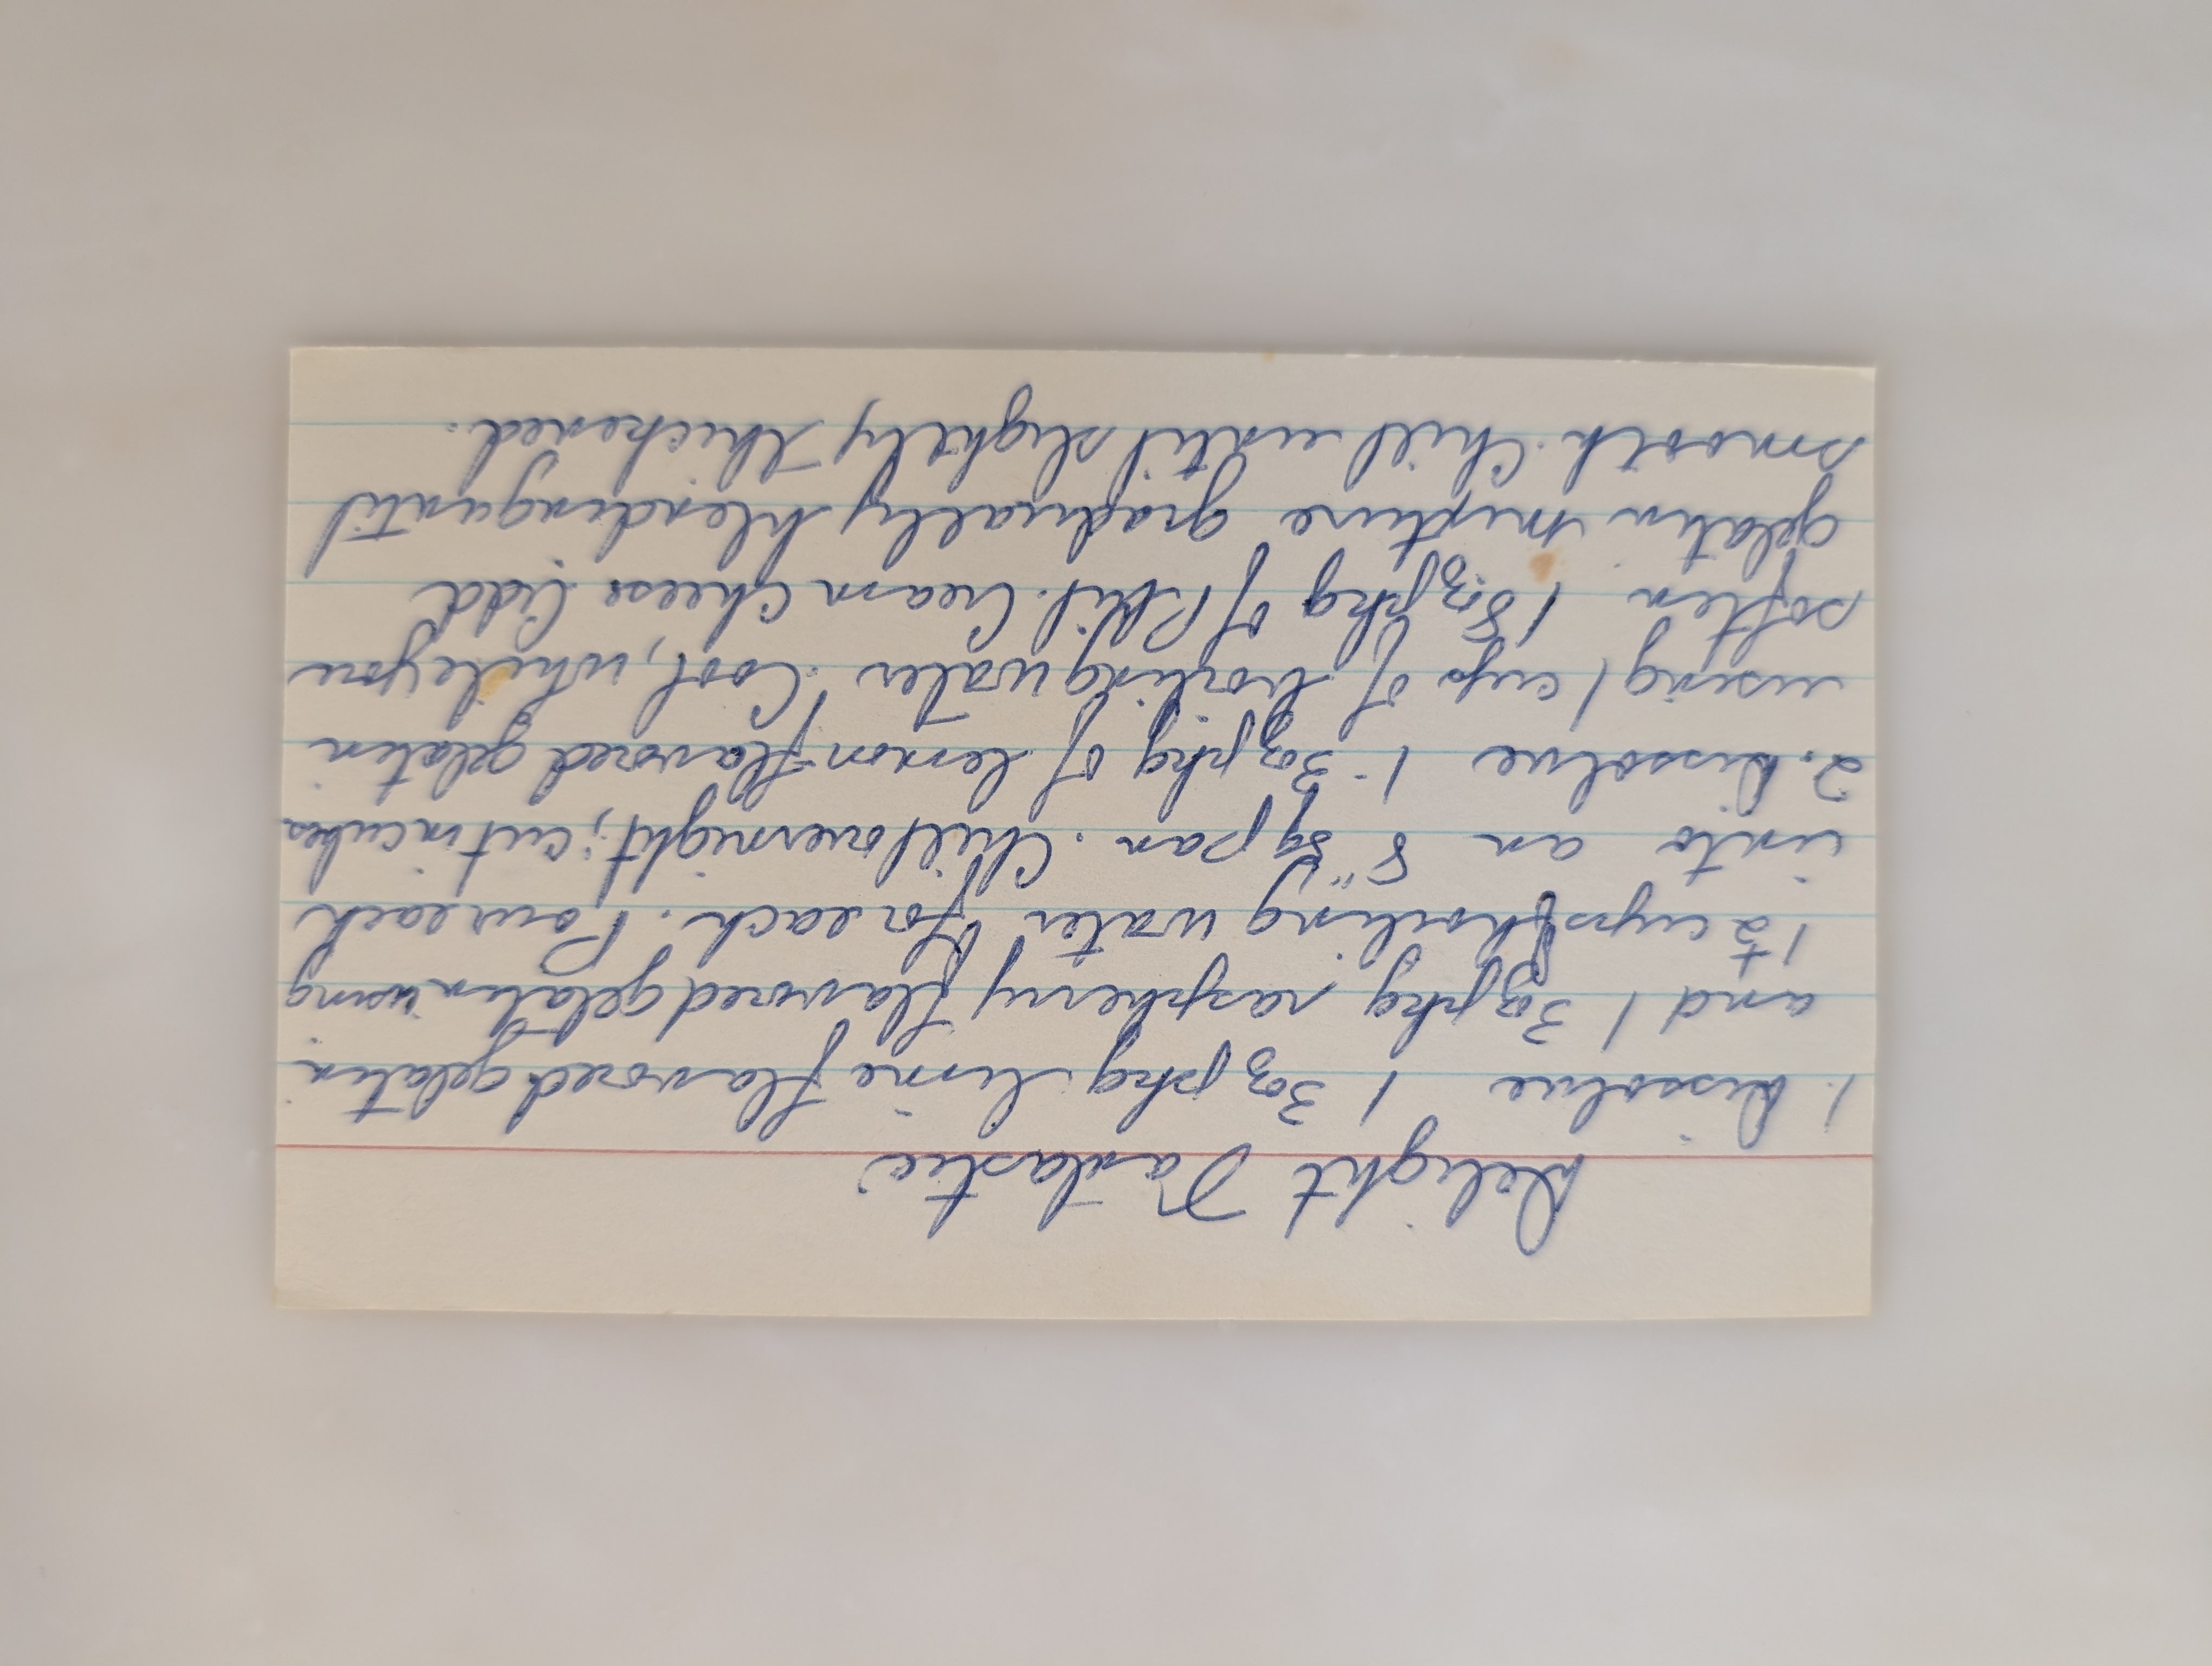 Delight Fantastic
1. Dissolve 1 3oz pkg lime flavored gelatin
and 1 3oz pkg raspberry flavored gelatin using
1 1/2 cups boiling water for each. Pour each
into an 8" sq pan. Chill overnight; cut in cubes
2. Dissolve 1-3oz pkg of lemon-flavored gelatin
using 1 cup of boiling water. Cool, while you
soften 1 8oz pkg of Phil. Cream Cheese. Add
gelatin mixture gradually blending until
smooth. Chill until slightly thickened.